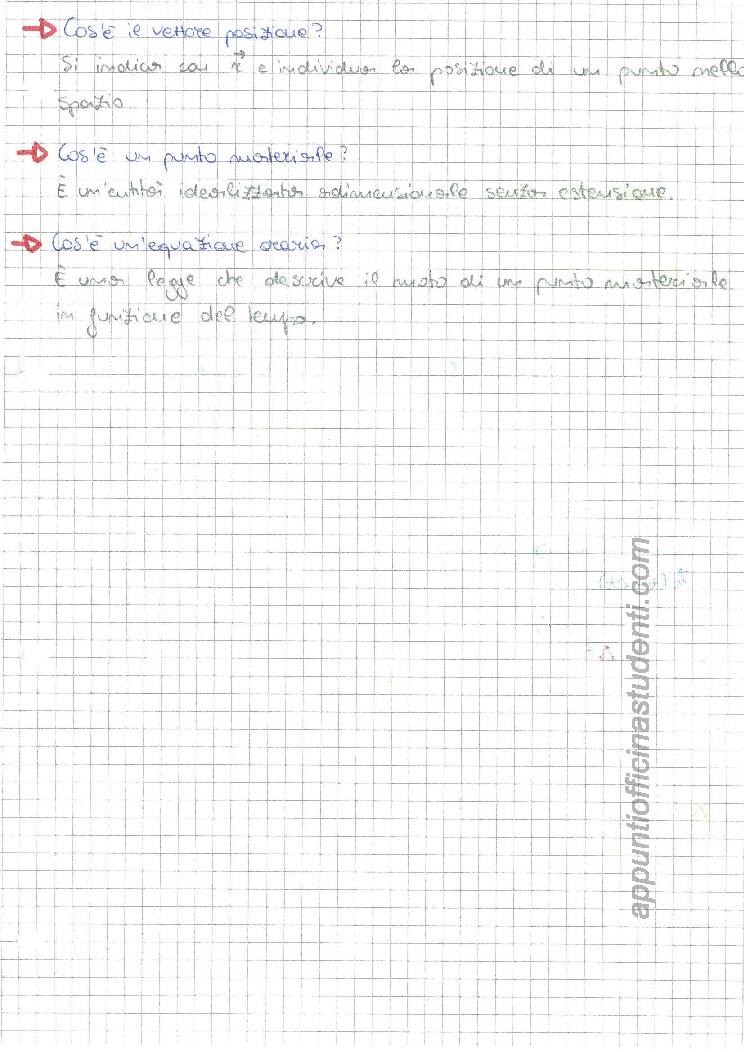 Cos'è il vettore posizione?
Si indica con r⃗ e individua la posizione di un punto nello
spazio.
Cos'è un punto materiale?
È un'entità idealizzata adimensionale senza estensione.
Cos'è un'equazione oraria?
È una legge che descrive il moto di un punto materiale
in funzione del tempo.
appuntiofficinastudenti.com